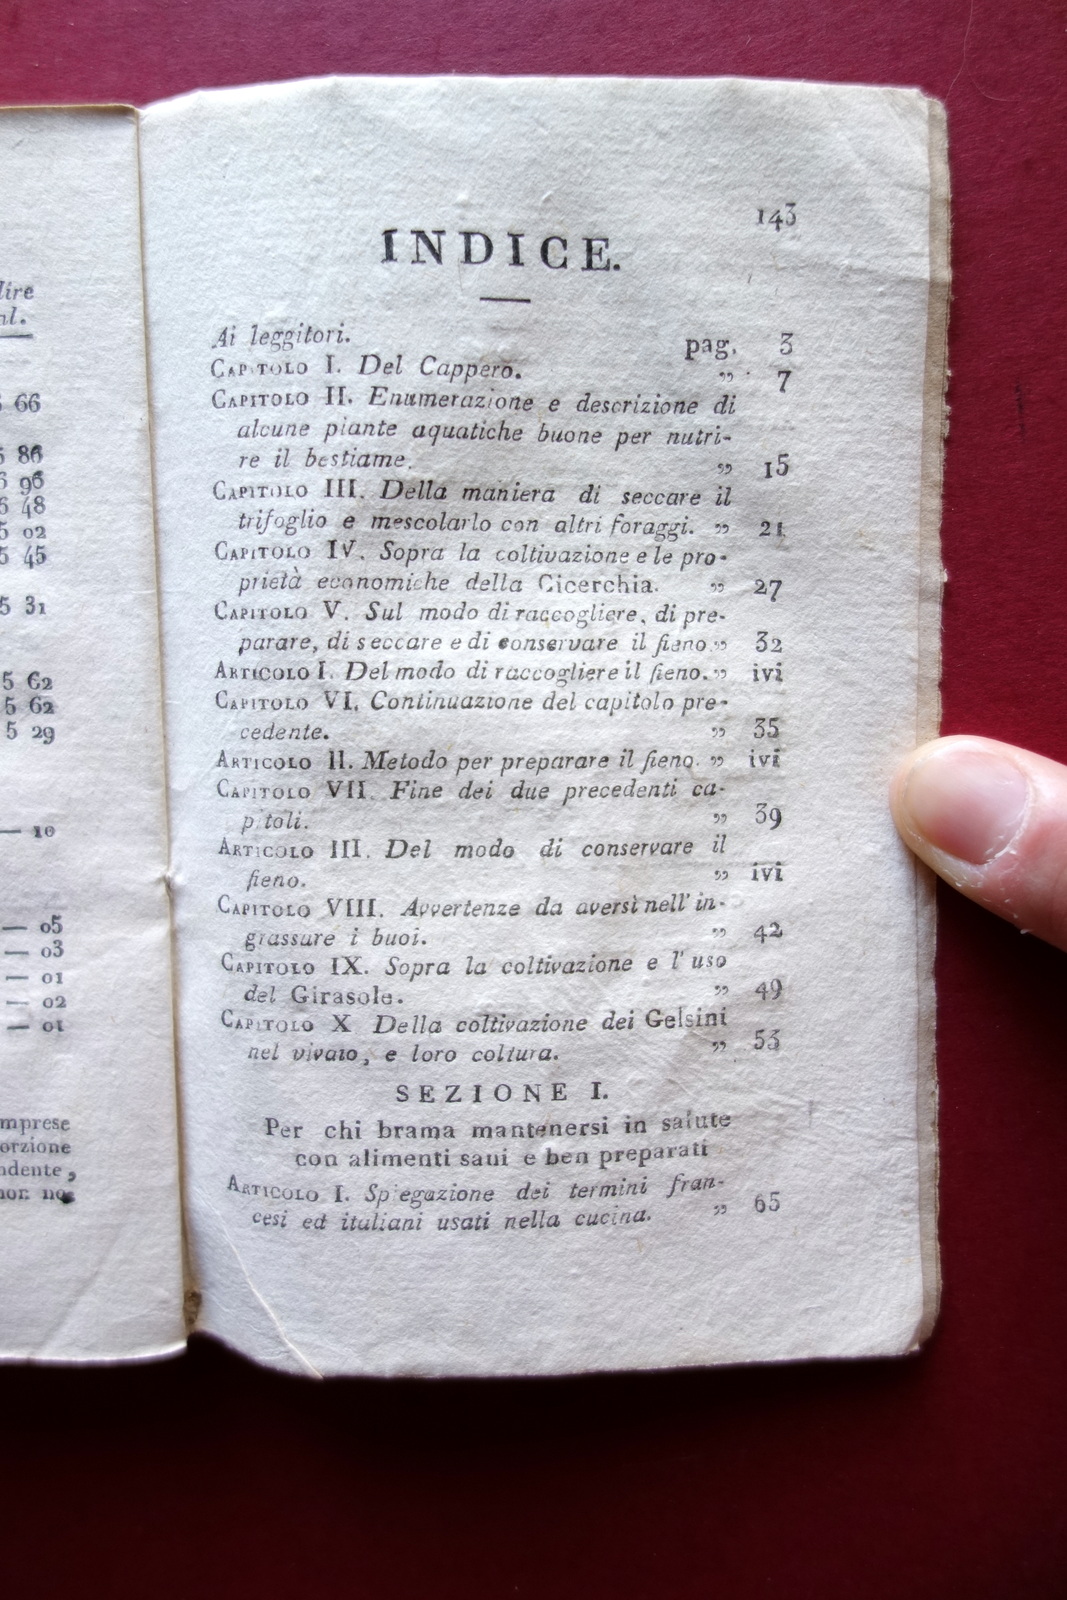 lire
al.
66
86
96
48
5 02
45
5 31
5 62
5 62
5 29
— 10
— 05
— 03
— 01
— 02
— 01
mprese
orzione
ndente,
non
143
INDICE.
Ai leggitori. pag. 3
CAPITOLO I. Del Cappero. „ 7
CAPITOLO II. Enumerazione e descrizione di
alcune piante aquatiche buone per nutri-
re il bestiame. „ 15
CAPITOLO III. Della maniera di seccare il
trifoglio e mescolarlo con altri foraggi. „ 21
CAPITOLO IV. Sopra la coltivazione e le pro-
prietà economiche della Cicerchia. „ 27
CAPITOLO V. Sul modo di raccogliere, di pre-
parare, di seccare e di conservare il fieno. „ 32
ARTICOLO I. Del modo di raccogliere il fieno. „ ivi
CAPITOLO VI. Continuazione del capitolo pre-
cedente. „ 35
ARTICOLO II. Metodo per preparare il fieno. „ ivi
CAPITOLO VII. Fine dei due precedenti ca-
pitoli. „ 39
ARTICOLO III. Del modo di conservare il
fieno. „ ivi
CAPITOLO VIII. Avvertenze da aversi nell' in-
grassare i buoi. „ 42
CAPITOLO IX. Sopra la coltivazione e l' uso
del Girasole. „ 49
CAPITOLO X Della coltivazione dei Gelsini
nel vivaio, e loro coltura. „ 53
SEZIONE I.
Per chi brama mantenersi in salute
con alimenti sani e ben preparati
ARTICOLO I. Spiegazione dei termini fran-
cesi ed italiani usati nella cucina. „ 65